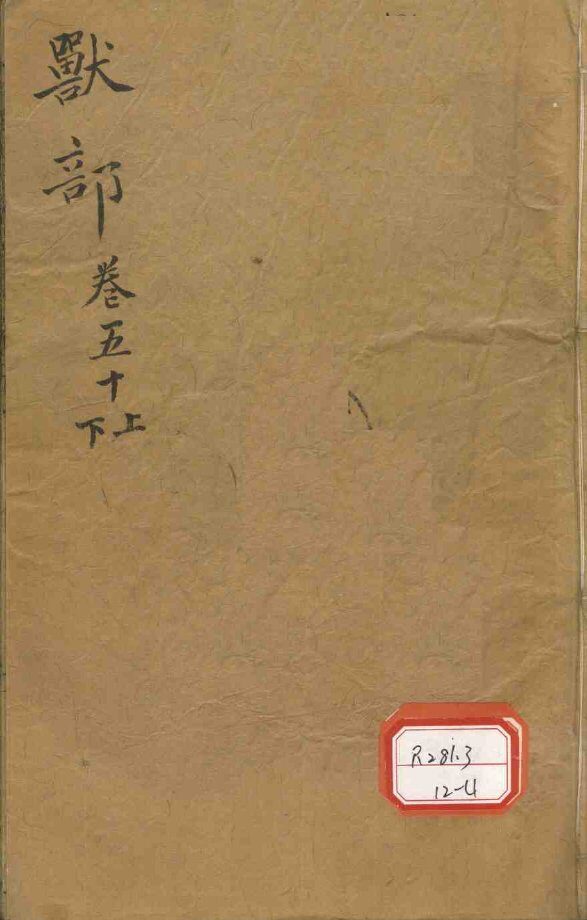 獸部
卷五十上
下
R281.3
12-4